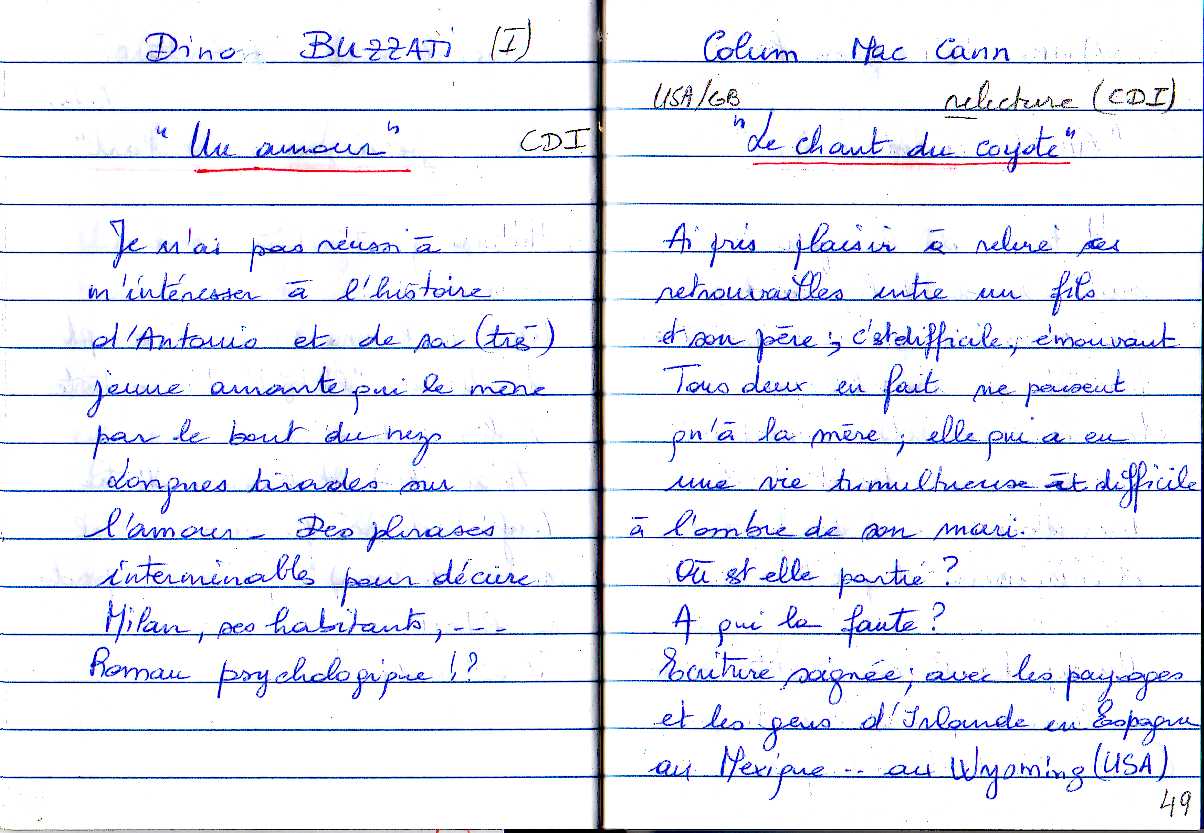 Dino BUZZATI (I)
"Un amour" CDI
Je n'ai pas réussi à
m'intéresser à l'histoire
d'Antonio et de sa (très)
jeune amante qui le mène
par le bout du nez.
Longues tirades sur
l'amour - Des phrases
interminables pour décrire
Milan, ses habitants, ---
Roman psychologique !?
Colum Mac Cann
USA/GB relecture (CDI)
"Le chant du coyote"
Ai pris plaisir à relire ces
retrouvailles entre un fils
et son père ; c'est difficile, émouvant
Tous deux en fait ne pensent
qu'à la mère ; elle qui a eu
une vie tumultueuse et difficile
à l'ombre de son mari.
Où est elle partie ?
A qui la faute ?
Ecriture soignée ; avec les paysages
et les gens d'Irlande en Espagne
au Mexique -- au Wyoming (USA)
49